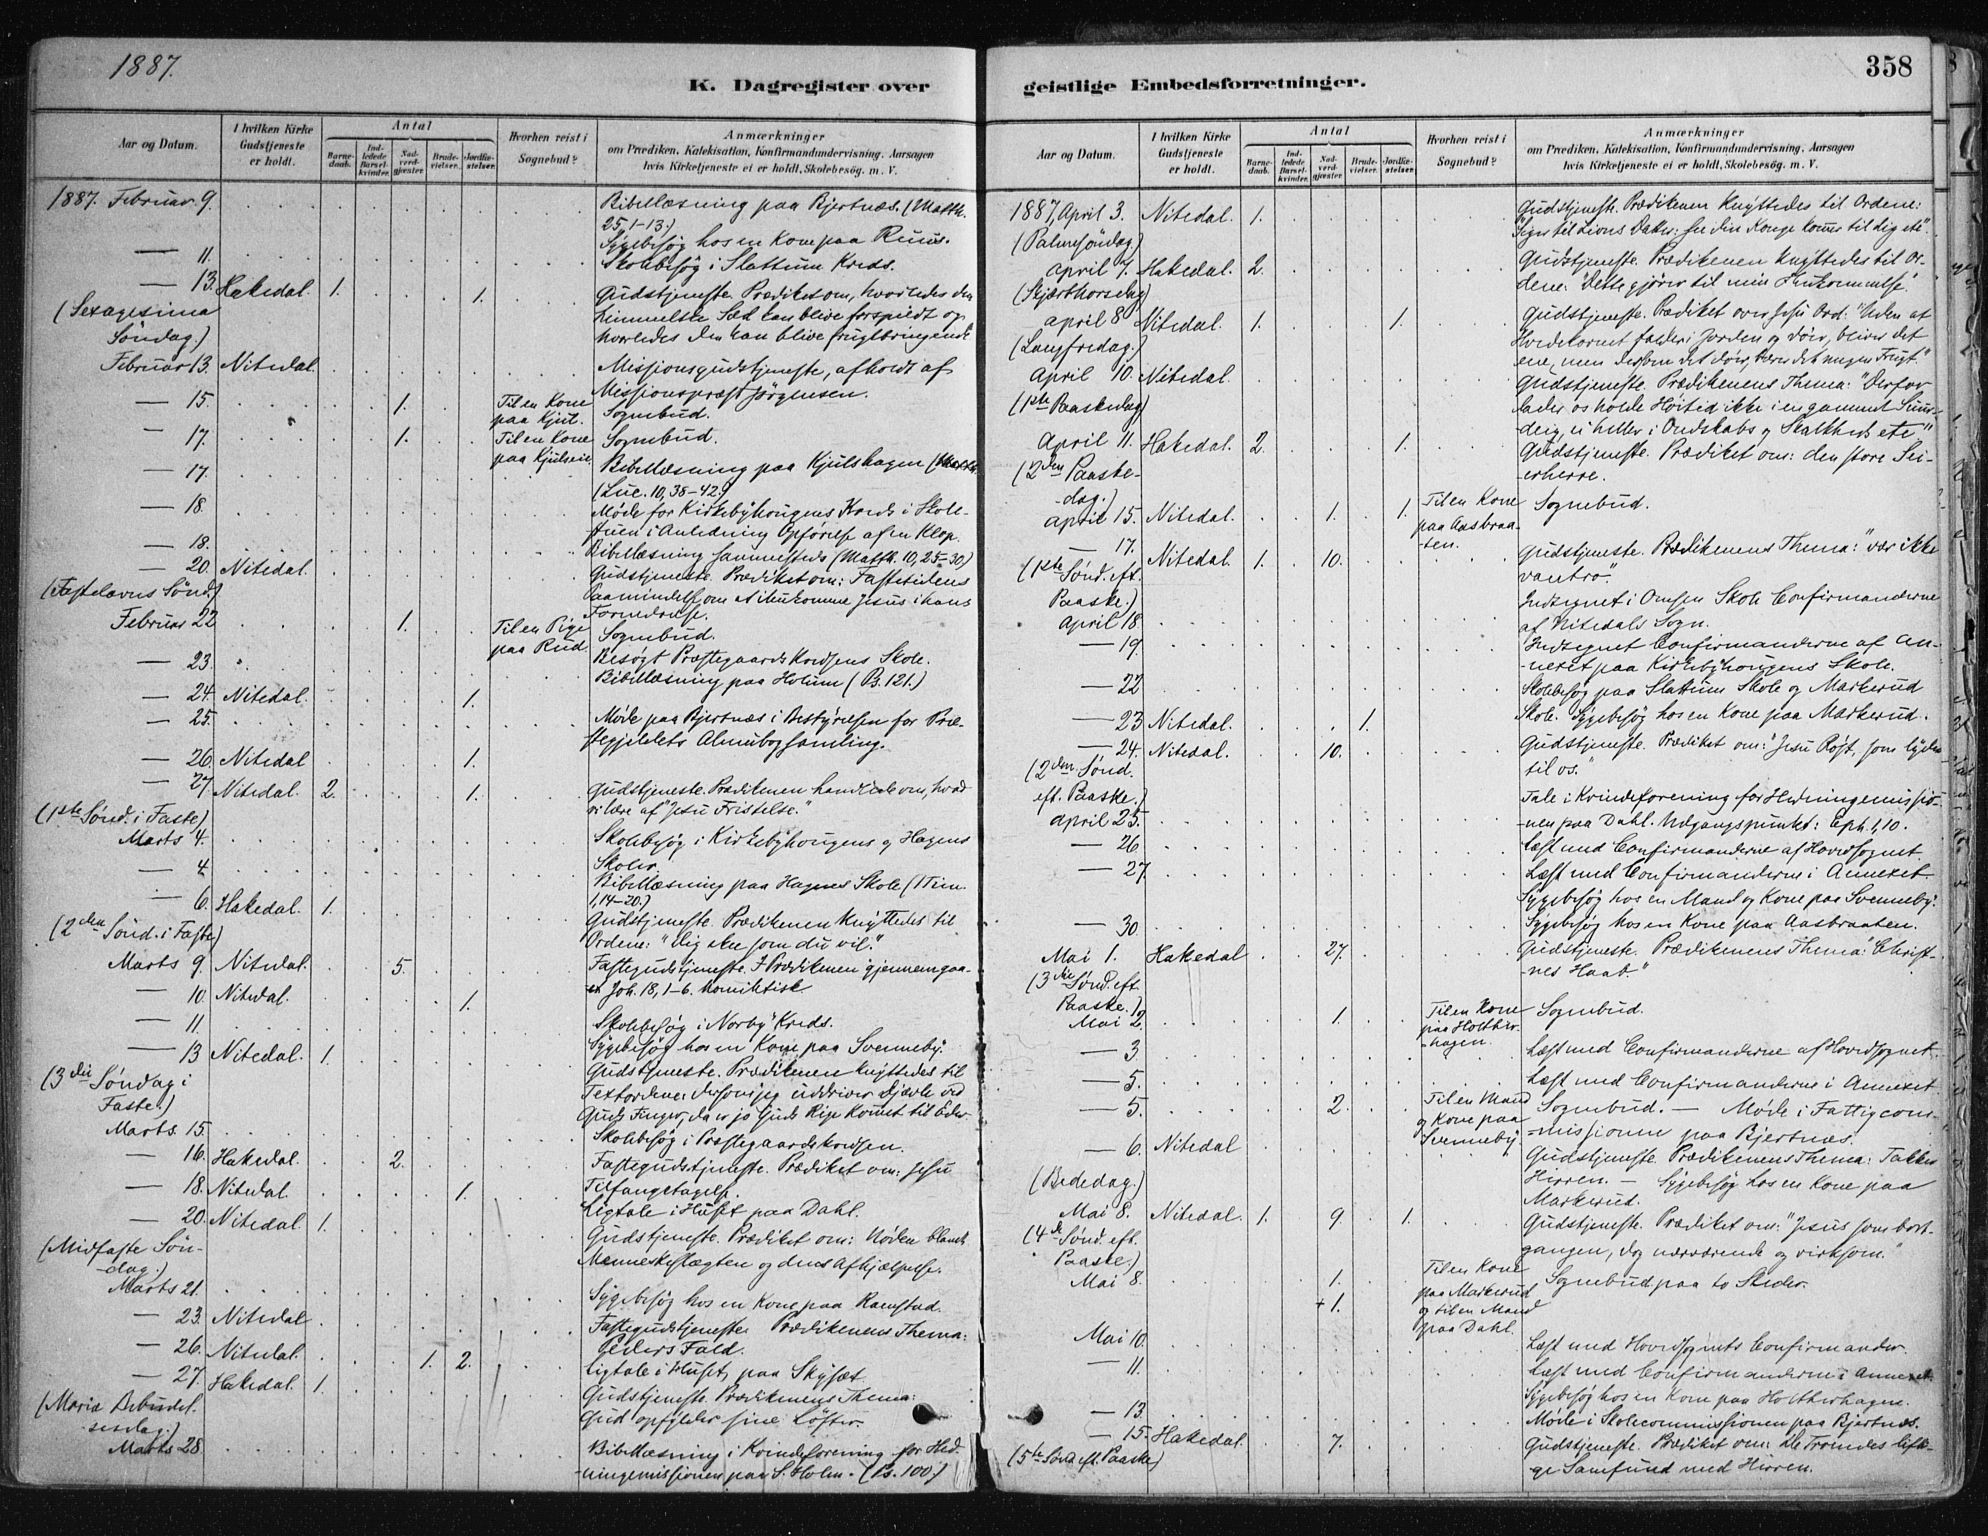 1887.
K. Dagregister over
Aar og Datum.
I hvilken Kirke Gudstjeneste er holdt.
Antal
Barne-daab.
Ind-ledede Barsel-kvinder.
Nad-verd-gjæster.
Brude-vielser.
Jordfæ-stelser.
Hvorhen reist i Sognebud?
Anmærkninger
om Prædiken, Katekisation, Konfirmandundervisning, Aarsagen
hvis Kirketjeneste ei er holdt, Skolebesög. m. V.
1887. Februar 9. Bibellæsning paa Bjertnæs. (Matth.
25, 1-13.)
— 11. Sygebesøg hos en Kone paa Ruus.
Skolebesøg i Slattum Kreds.
— 13. Hakedal. 1. 1. Gudstjeneste. Prædiket om, hvorledes den
(Sexagesima himmelske Sæd kan blive forspildt og
Søndag.) hvorledes den kan blive frugtbringende.
Februar 13. Nitedal. Missionsgudstjeneste, afholdt af
Missionspræst Jørgensen.
— 15. 1. Til en Kone paa Kjul. Sognebud.
— 17. 1. Til en Kone paa Kjulseie. Sognebud.
— 17. Bibellæsning paa Kjulshagen
(Luc. 10, 38-42.)
— 18. Møde for Kirkebyhougens Kreds i Skole-
stuen i Anledning Opførelse af en Klop.
— 18. Bibellæsning sammesteds (Matth. 10, 25-30)
— 20. Nitedal. Gudstjeneste. Prædiket om: Fastetidens
(Fastelavns Sønd.) Paamindelse om at ihukomme Jesus i hans
Fornedrelse.
Februar 22 1. Til en Pige paa Rud. Sognebud.
— 23. Besøgt Præstegaards Kredsens Skole.
Bibellæsning paa Holum (Ps. 121.)
— 24. Nitedal. 1.
— 25. Møde paa Bjertnæs i Bestyrelsen for Præ-
stegjeldets Almubogsamling.
— 26. Nitedal 1.
— 27. Nitedal. 2. 1. Gudstjeneste. Prædikenen handlede om, hvad
(1ste Sønd. i Faste) vi lære af "Jesu Fristelse."
Marts 4. Skolebesøg i Kirkebyhougens og Hagens
Skoler.
— 4. Bibellæsning paa Hagens Skole (1 Tim.
1, 14-20.)
— 6. Hakedal. 1. Gudstjeneste. Prædikenen knyttedes til
(2den Sønd. i Faste) Ordene: "dig ske som du vil."
Marts 9. Nitedal. 5. Fastegudstjeneste. I Prædikenen gjennemgaa-
es Joh. 18, 1-6. homiletisk.
— 10. Nitedal. 1.
— 11. Skolebesøg i Norby Kreds.
Sygebesøg hos en Kone paa Svenneby.
— 13 Nitedal. 1. Gudstjeneste. Prædikenen knyttedes til
(3die Søndag i Textordene: dersom jeg uddriver Djævle ved
Faste.) Guds Finger, da er jo Guds Rige kommet til Eder.
Marts. 15. Skolebesøg i Præstegaardskredsen.
— 16. Hakedal. 2. Fastegudstjeneste. Prædiket om: Jesu
Tilfangetagelse.
— 18. Nitedal. 1. Ligtale i Huset paa Dahl.
— 20. Nitedal. 1. Gudstjeneste. Prædiket om: Nøden blandt
(Midfaste Søn-dag.) Menneskeslægten og dens Afhjælpelse.
Marts 21. Sygebesøg hos en Kone paa Ramstad.
— 23. Nitedal Fastegudstjeneste Prædikenens Thema:
Peders Fald.
— 26. Nitedal. 1. 2. Ligtale i Huset, paa Skyset.
— 27. Hakedal. 1. Gudstjeneste. Prædikenens Thema:
(Maria Bebudel-sesdag.) Gud opfylder sine Løfter.
Marts 28. Bibellæsning i Kvindeforening for Hed-
ningemissionen paa S. Holm. (Ps. 100.)
geistlige Embedsforretninger.
358
Aar og Datum.
I hvilken Kirke Gudstjeneste er holdt.
Antal
Barne-daab.
Ind-ledede Barsel-kvinder.
Nad-verd-gjæster.
Brude-vielser.
Jordfæ-stelser.
Hvorhen reist i Sognebud?
Anmærkninger
om Prædiken, Katekisation, Konfirmandundervisning, Aarsagen
hvis Kirketjeneste ei er holdt, Skolebesög. m. V.
1887, April 3. Nitedal. 1. Gudstjeneste. Prædikenen knyttedes til Ordene:
(Palmesöndag.) "Siger til Zions Datter: see din Konge kommer til dig etc".
April 7. Hakedal. 2. Gudstjeneste. Prædikenen knyttedes til Or-
(Skjærthorsdag) dene: "Dette gjører til min Ihukommelse."
April 8 Nitedal. 1. 1. Gudstjeneste. Prædiket over Jesu Ord: "Uden at
(Langfredag.) Hvedekornet falder i Jorden og dør, bliver det
ene, men dersom det dør, bærer det megen Frugt."
April 10. Nitedal. Gudstjeneste. Prædikenens Thema: "Derfor
(1ste Paaskedag) lader os holde Høitid ikke i en gammel Suur-
deig, ei heller i Ondskabs og Skalkheds etc"
April 11. Hakedal. 2. 1. Gudstjeneste. Prædiket om: den store Sei-
(2den Paaske-dag.) erherre.
April 15. Nitedal. 1. 1. Til en Kone paa Aasbraa-ten. Sognebud.
— 17. Nitedal. 1. 10. Gudstjeneste. Prædikenens Thema: "vær ikke
(1ste Sønd. eft. Paaske.) vantro".
April 18. Indtegnet i Omsen Skole Confirmanderne
af Nitedals Sogn.
— 19. Indtegnet Confirmanderne af An-
nexet paa Kirkebyhougens Skole.
— 22 Skolebesøg paa Slattums Skole og Markerud
Skole. Sygebesøg hos en Kone paa Markerud.
— 23 Nitedal. 1.
— 24. Nitedal. 10. Gudstjeneste. Prædiket om: "Jesu Røst, som lyder
(2den Sønd. eft. Paaske.) til os."
April 25. Tale i Kvindeforening for Hedningemissio-
nen paa Dahl. Udgangspunkt: Eph. 1, 10.
— 26 Læst med Confirmanderne af Hovedsognet
— 27. Læst med Confirmanderne i Annexet.
Sygebesøg hos en Mand og Kone paa Svenneby.
— 30. Sygebesøg hos en Kone paa Aasbraaten.
Mai 1. Hakedal 27. Gudstjeneste. Prædikenens Thema: "Christ-
(3die Sønd. eft. Paaske.) nes Haab."
Mai 2. 1. Til en Kone paa Holther-hagen. Sognebud.
— 3 Læst med Confirmanderne af Hovedsognet.
— 5. Læst med Confirmanderne i Annexet
— 5. 2. Til en Mand og Kone paa Svenneby. Sognebud. — Møde i Fattigcom-
missionen paa Bjertnæs.
— 6. Nitedal Gudstjeneste. Prædikenens Thema: Takker
(Bededag.) Herren. — Sygebesøg hos en Kone paa
Markerud.
Mai 8. Nitedal. 1. 9. 1. Gudstjeneste. Prædiket om: "Jesus som bort-
(4de Sønd. eft. Paaske.) gangen, dog nærværende og virksom."
Mai 8. 1. + 1. Til en Kone paa Markerud og til en Mand paa Dahl. Sognebud paa to Steder.
Mai 10. Læst med Hovedsognets Confirmander.
— 11. Læst med Confirmanderne i Annexet.
Sygebesøg hos en Kone paa Holtherhagen.
— 13. Møde i Skolecommissionen paa Bjertnæs.
— 15. Hakedal. 7. Gudstjeneste. Prædiket om: De Troendes lifli-
(5te Sønd. eft. Paaske) ge Samfund med Herren.